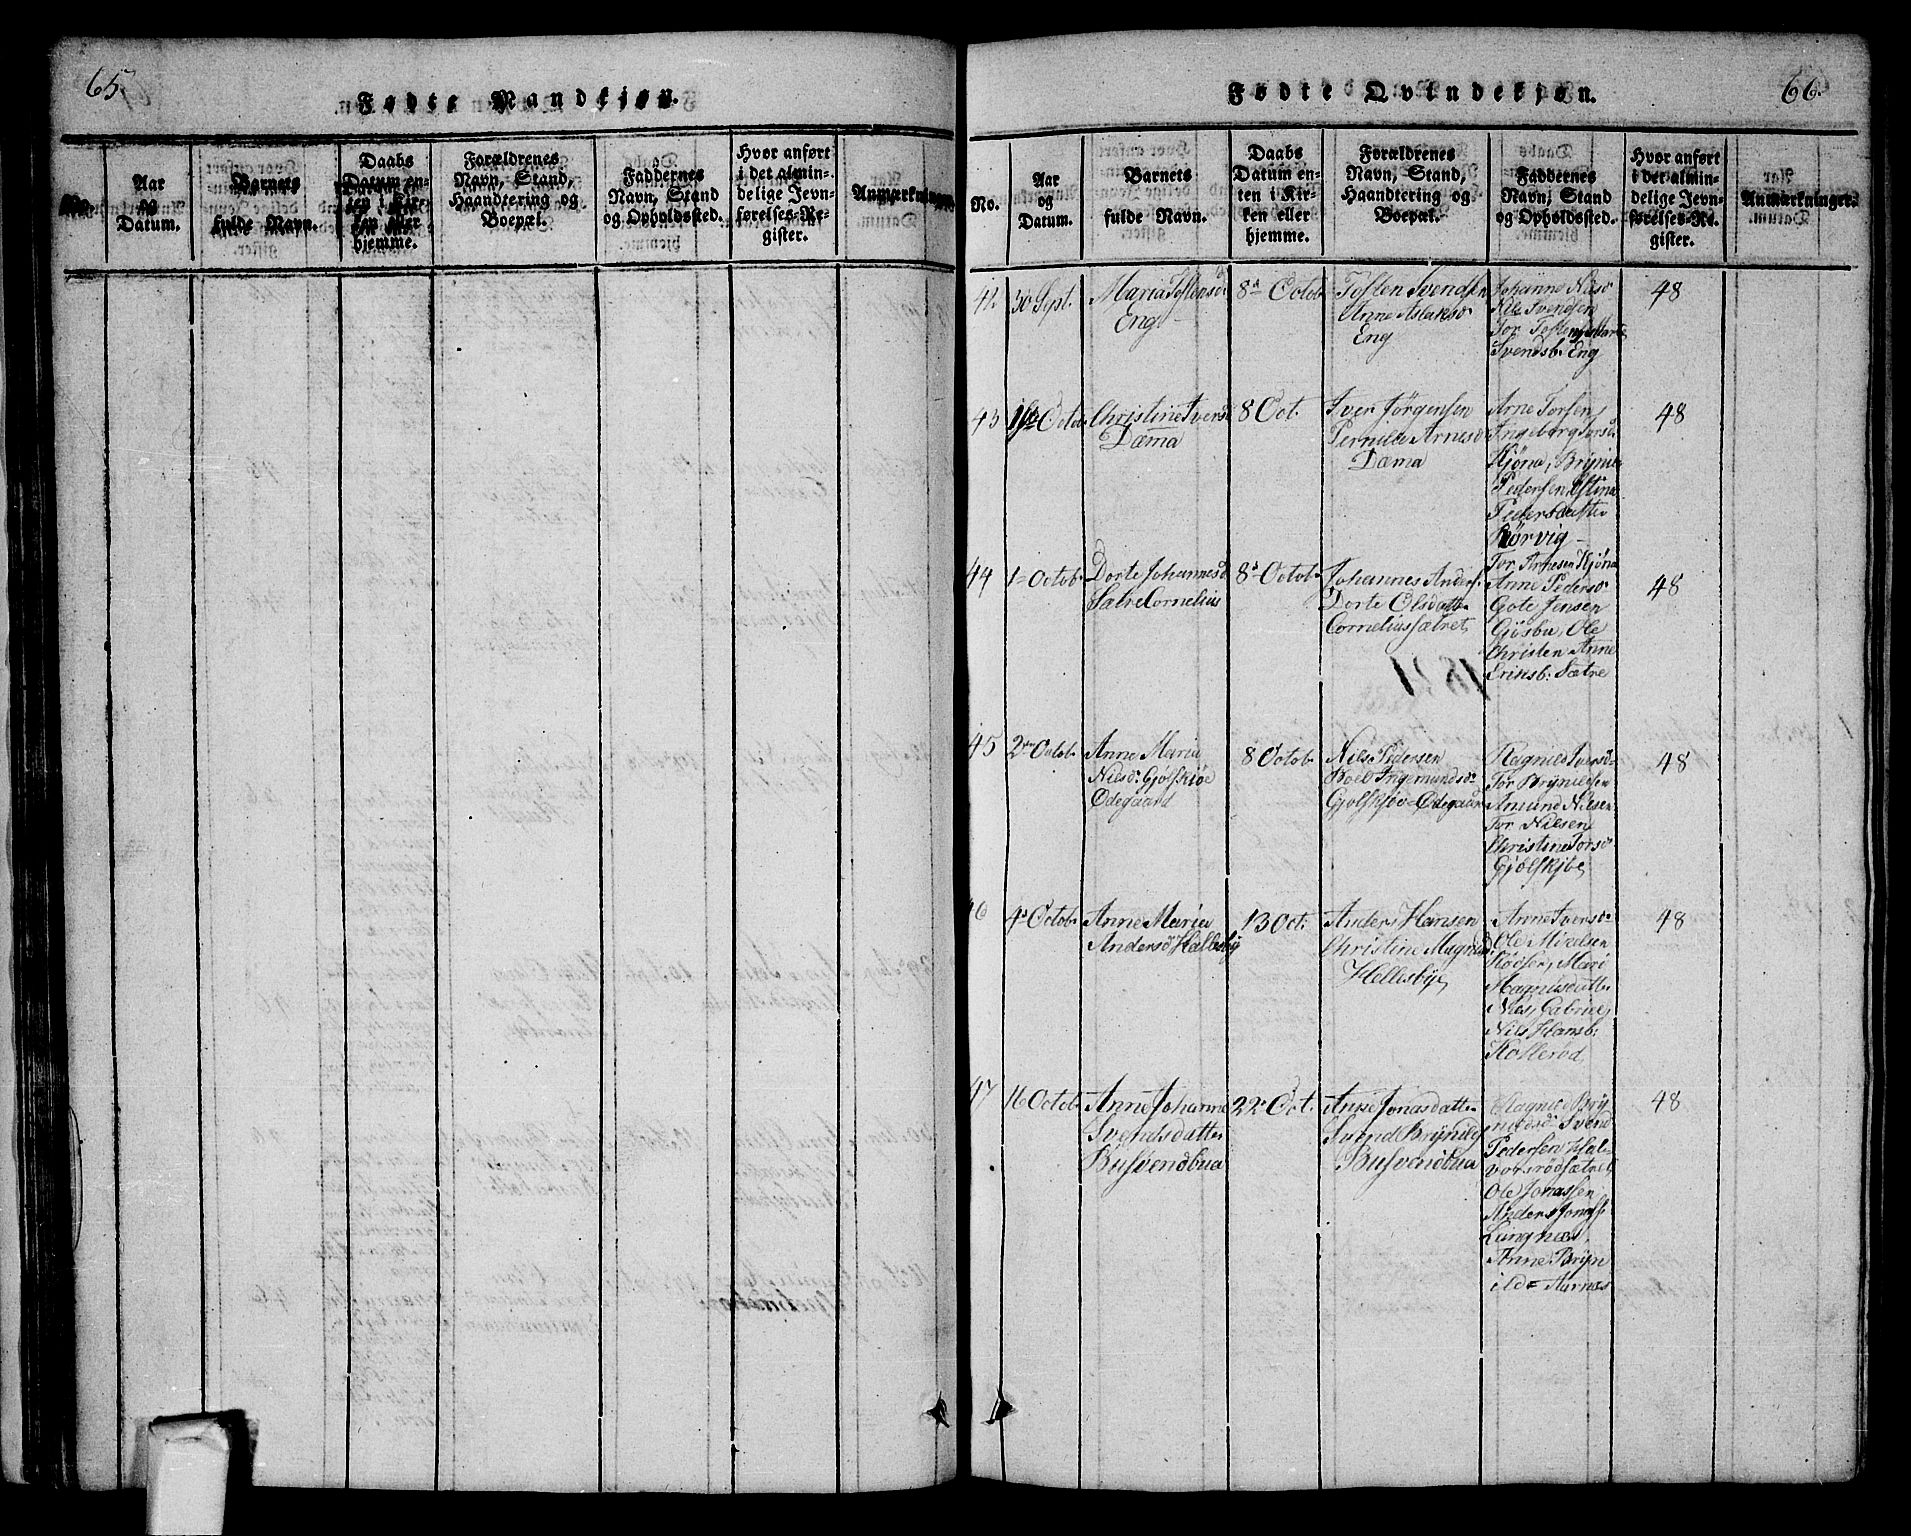 65.
Fødte Mandkjøn.
No.
Aar
og
Datum.
Barnets
fulde Navn.
Daabs
Datum en-
ten i Kir-
ken eller
hjemme.
Forældrenes
Navn, Stand,
Haandtering og
Boepæl.
Faddernes
Navn, Stand
og Opholdssted.
Hvor anført
i det almin-
delige Jevn-
førelses-Re-
gister.
Anmærkninger.
66.
Fødte Qvindekjøn.
No.
Aar
og
Datum.
Barnets
fulde Navn.
Daabs
Datum en-
ten i Kir-
ken eller
hjemme.
Forældrenes
Navn, Stand,
Haandtering og
Boepæl.
Faddernes
Navn, Stand
og Opholdssted.
Hvor anført
i det almin-
delige Jevn-
førelses-Re-
gister.
Anmærkninger.
42.
30 Sept.
Maria Tostensd
Eng
8de Octob
Tosten Svendsen
Anne Aslaksd
Eng
Johanne Nilsd
Nils Svendsen
Tor Tostensen
Svendsb. Eng
48
43
Octob.
Christine Iversd
Dæma
8 Oct.
Iver Jørgensen
Pernille Arnesd
Dæma
Arne Torsen,
Ingeborg Torsd
Kjøna, Brynild
Pedersen, Stina
Pedersdatter
Rørvig
48
44
1 Octob.
Dorte Johannesd
Sætre Cornelius
8d Octob.
Johannes Anders.
Dorte Olsdatt
Corneliussætret
Tor Arnesen Kjøna
Anne Pedersd
Gote Jensen
Gjøsbu, Ole
Christen Anne
Eriksb: Sætre
48
45
2den Octob.
Anne Maria
Nilsd. Gjølskjøe
Ødegaard
8 Octob.
Nils Pedersen
Boel Ingemundsd
Gjølskjøe-Ødegaar
Ragnild Iversd
Tor Brynildsen
Amund Nilsen
Tor Nilsen
Christine Torsd
Gjølskjøe
48
46
4d Octob.
Anne Maria
Andersd Hallesby
13 Oct:
Anders Hansen
Christine Magnusd.
Hellesbye
Anne Iversd.
Ole Mikelsen
Rødser, Mari
Magnusdatt
Nils Gabriel,
Nils Hansb:
Kollerød
48
47
16 Octob.
Anne Johanne
Svendsdatt
Busvendbua
22d Oct.
Anne Jonasdatt
Svend Brynilds
Busvendbua
Ragnild Bryn
nildsd Svend
Pedersen Hal-
vorsrødsætret
Ole Jonassen
Anders Jonass
Langnæs,
Anne Bryn
ild= Aarnæs
48